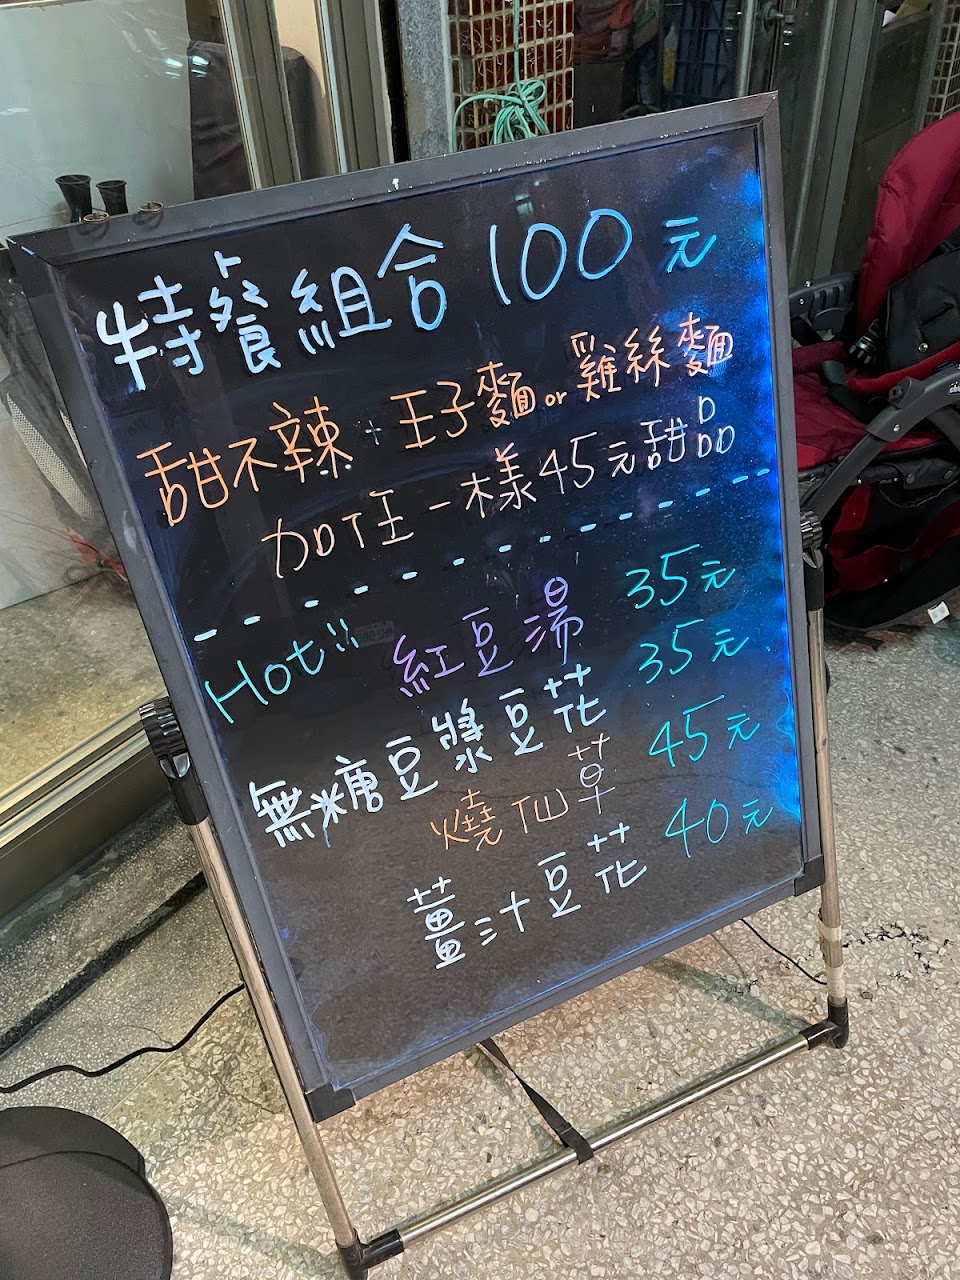 特餐組合100元
甜不辣+王子麵or雞絲麵
加任一樣45元甜品
Hot!! 紅豆湯 35元
無糖豆漿豆花 35元
燒仙草 45元
薑汁豆花 40元